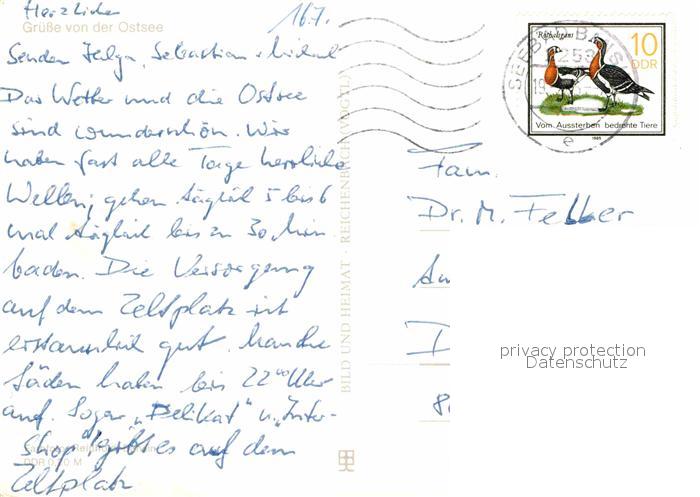 Herzliche
16.7.
Grüße von der Ostsee
senden Helga, Sebastian + Michael
Das Wetter und die Ostsee
sind wunderschön. Wir
haben fast alle Tage herrliche
Wellen, gehen täglich 5 bis 6
mal täglich bis zu 30 Min
baden. Die Versorgung
auf dem Zeltplatz ist
erstaunlich gut. Manche
Läden haben bis 22⁰⁰ Uhr
auf. Sogar "Delikat" u. "Inter-
shop" gibt es auf dem
Zeltplatz
DDR 0,20 M
BILD UND HEIMAT · REICHENBACH (VOGTL)
Rothalsgans
10
DDR
Vom Aussterben bedrohte Tiere
1985
SEEBAD
253
e
Fam.
Dr. M. Felber
privacy protection
Datenschutz